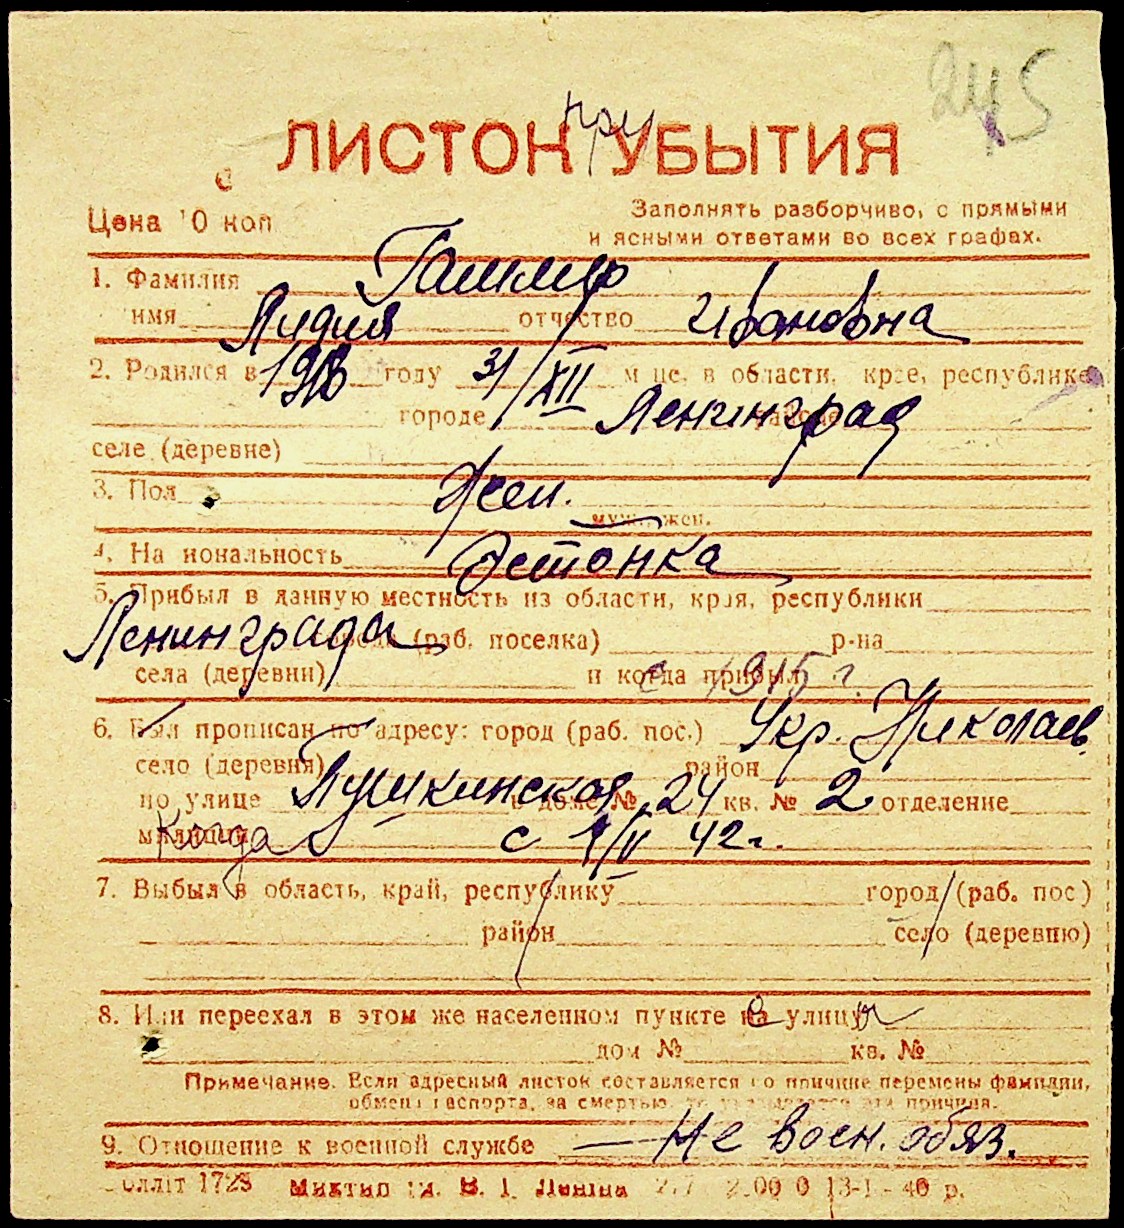 245
при
ЛИСТОК УБЫТИЯ
Цена 10 коп
Заполнять разборчиво, с прямыми
и ясными ответами во всех графах.
1. Фамилия
имя Лидия отчество Ивановна
2. Родился в 1918 году 31/XII м-це, в области, крае, республике
городе Ленинград районе
селе (деревне)
3. Пол Жен.
муж., жен.
4. Национальность Эстонка
5. Прибыл в данную местность из области, края, республики
Ленинграда города (раб. поселка) р-на
села (деревни) и когда прибыл с 1915 г.
6. Был прописан по адресу: город (раб. пос.) Укр. Николаев
село (деревня) район
по улице Пушкинская в доме № 24 кв. № 2 отделение
милиции Когда с 1/V 42 г.
7. Выбыл в область, край, республику город (раб. пос)
район село (деревню)
8. Или переехал в этом же населенном пункте на улицу
дом № кв. №
Примечание. Если адресный листок составляется по причине перемены фамилии,
обмена паспорта, за смертью, то указывается эта причина.
9. Отношение к военной службе — Не воен. обяз.
1728 В. І. Леніна 13-І-40 р.